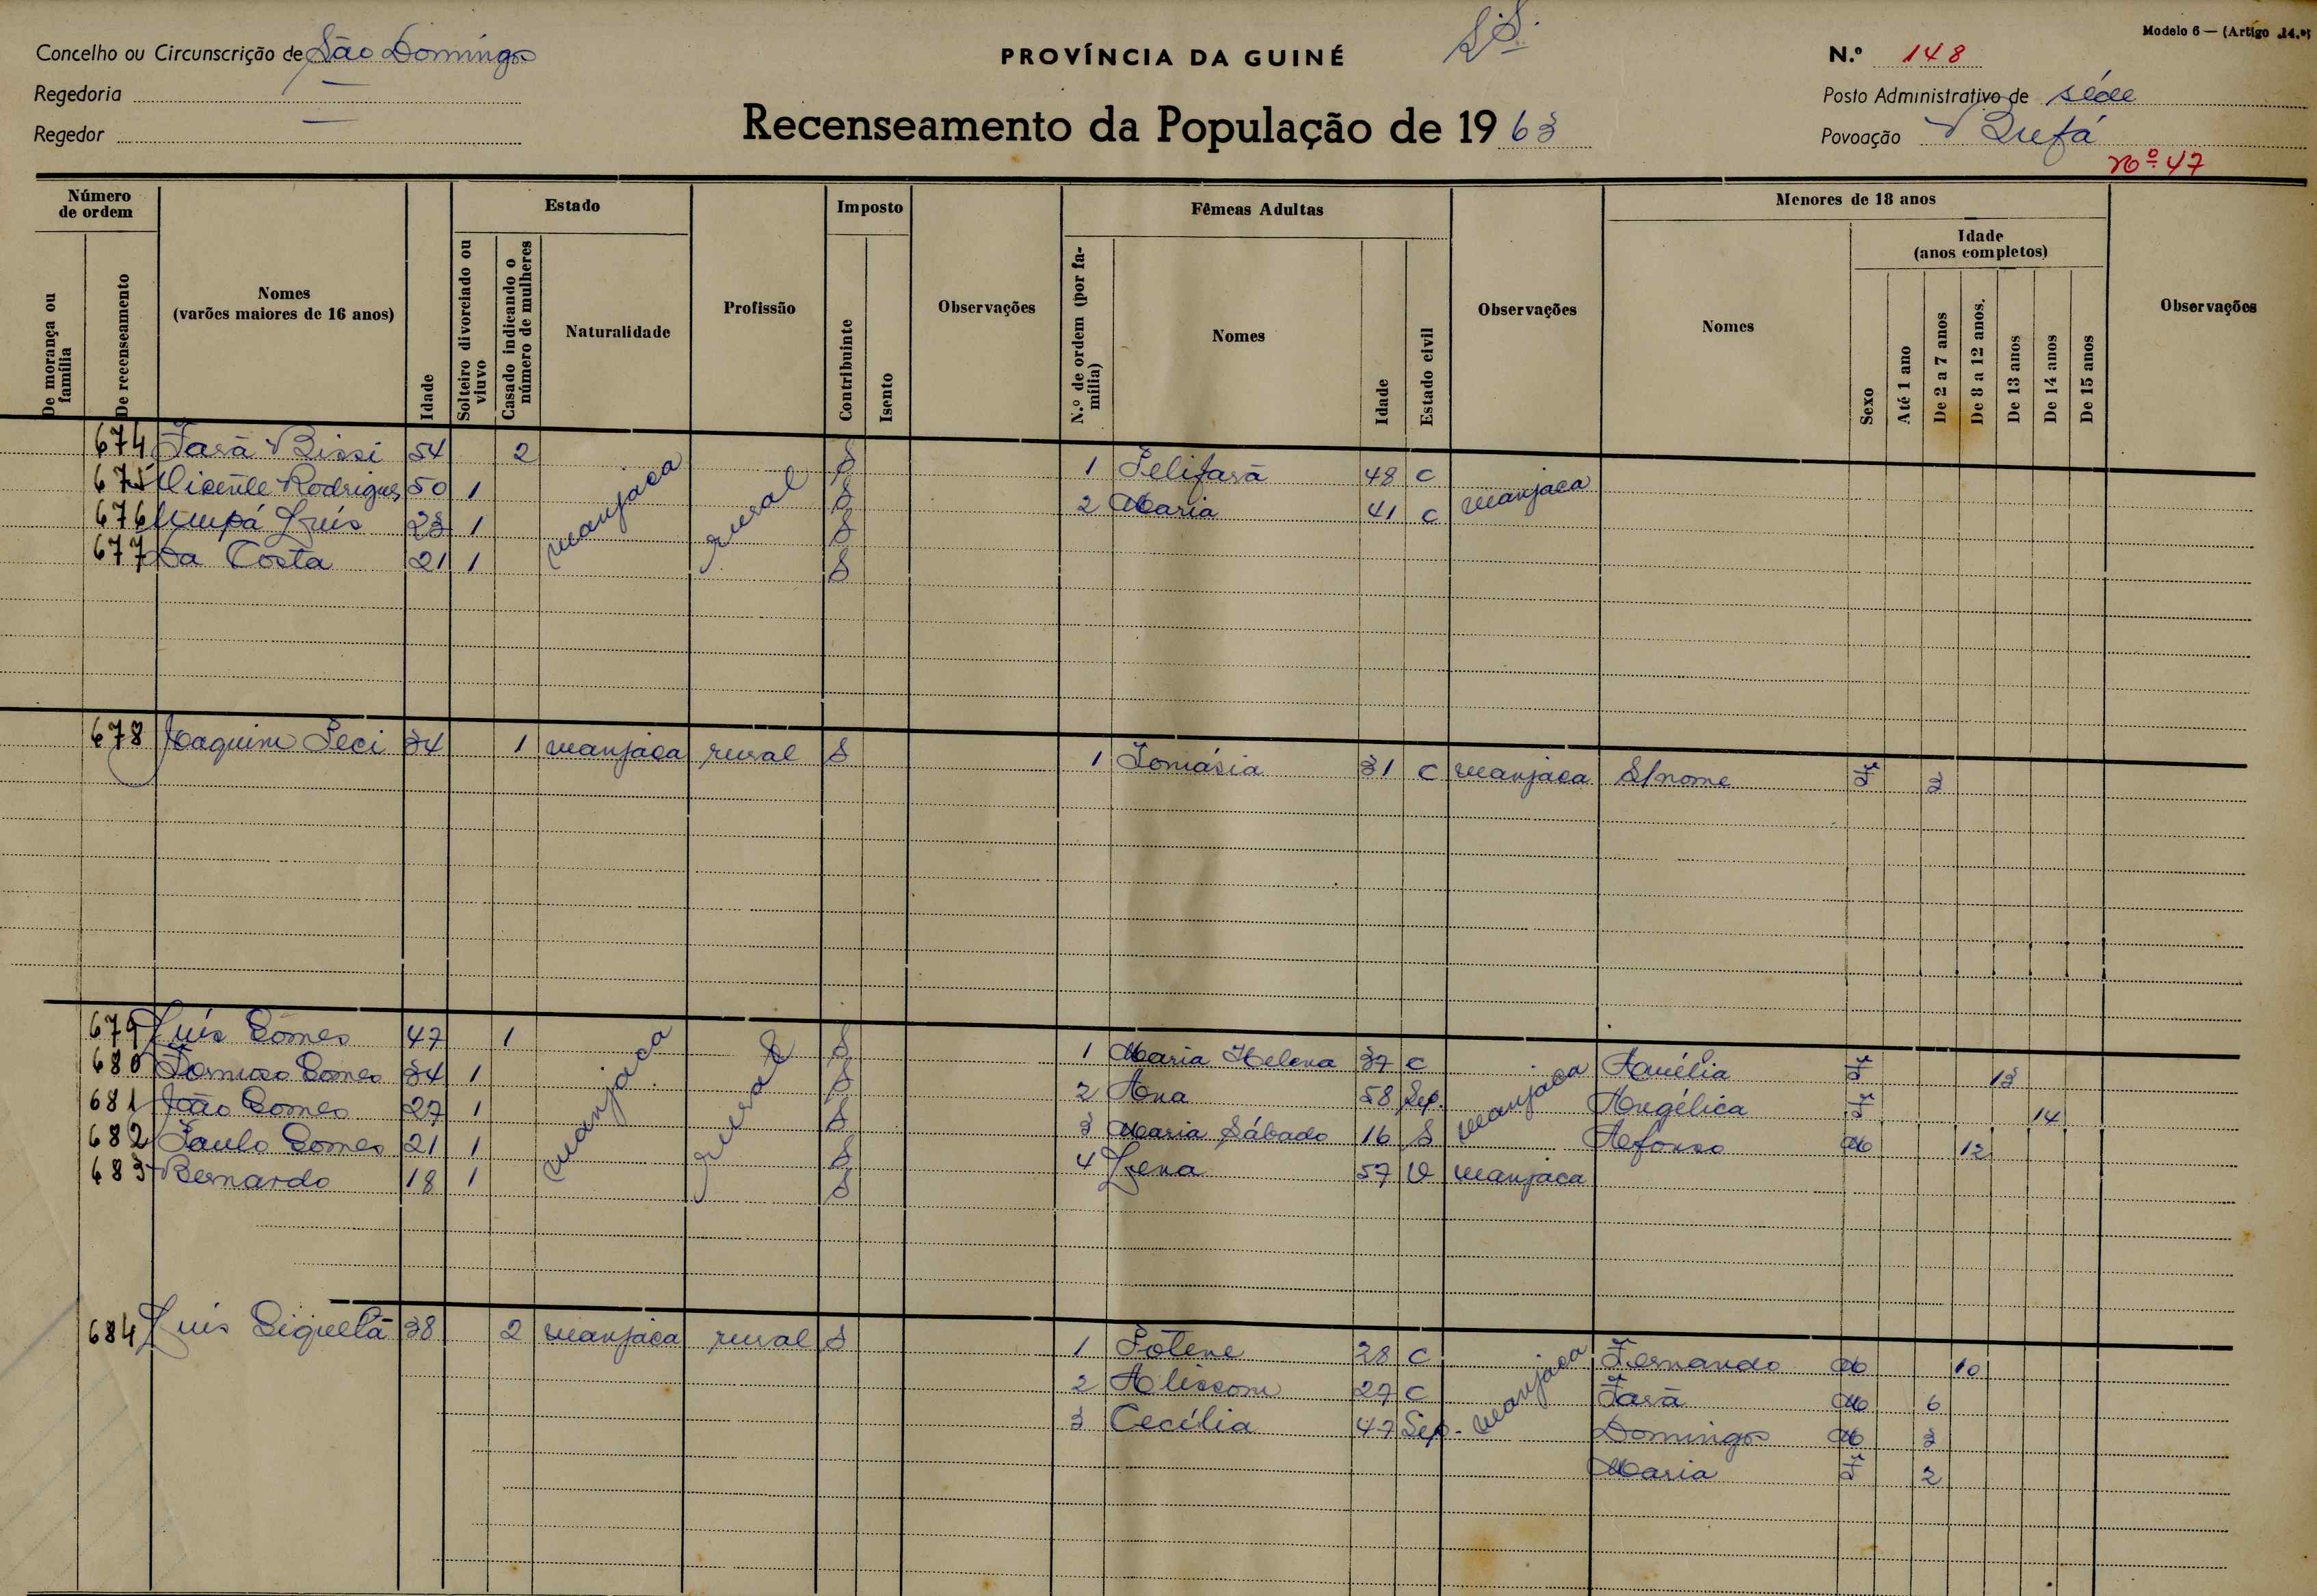 Modelo 6 — (Artigo 14.º)
Concelho ou Circunscrição de São Domingos
PROVÍNCIA DA GUINÉ
N.º 148
Regedoria —
Posto Administrativo de séde
Regedor —
Recenseamento da População de 1963
Povoação Bufá
nº 47
Número de ordem
Estado
Imposto
Fêmeas Adultas
Menores de 18 anos
Idade (anos completos)
De morança ou família
De recenseamento
Nomes (varões maiores de 16 anos)
Idade
Solteiro divorciado ou viuvo
Casado indicando o número de mulheres
Naturalidade
Profissão
Contribuinte
Isento
Observações
N.º de ordem (por família)
Nomes
Idade
Estado civil
Observações
Nomes
Sexo
Até 1 ano
De 2 a 7 anos
De 8 a 12 anos.
De 13 anos
De 14 anos
De 15 anos
Observações
674 Tasã Bissi 54 2 manjaca rural S 1 Felifasã 48 C manjaca
675 Vicente Rodrigues 50 1 S 2 Maria 41 C
676 Umpá Luís 23 1 S
677 Da Costa 21 1 S
678 Joaquim Peci 34 1 manjaca rural S 1 Tomásia 31 C manjaca S/nome F 3
679 Luís Gomes 47 1 manjaca rural S 1 Maria Helena 37 C manjaca Amélia F 13
680 Formoso Gomes 34 1 S 2 Ana 58 Sep. Angélica F 14
681 João Gomes 27 1 S 3 Maria Sábado 16 S Afonso M 12
682 Paulo Gomes 21 1 S 4 Lena 57 V manjaca
683 Bernardo 18 1 S
684 Luís Siquetã 38 2 manjaca rural S 1 Potene 28 C manjaca Fernando M 10
2 Alissom 27 C Fasã M 6
3 Cecília 47 Sep. Domingos M 3
Maria F 2